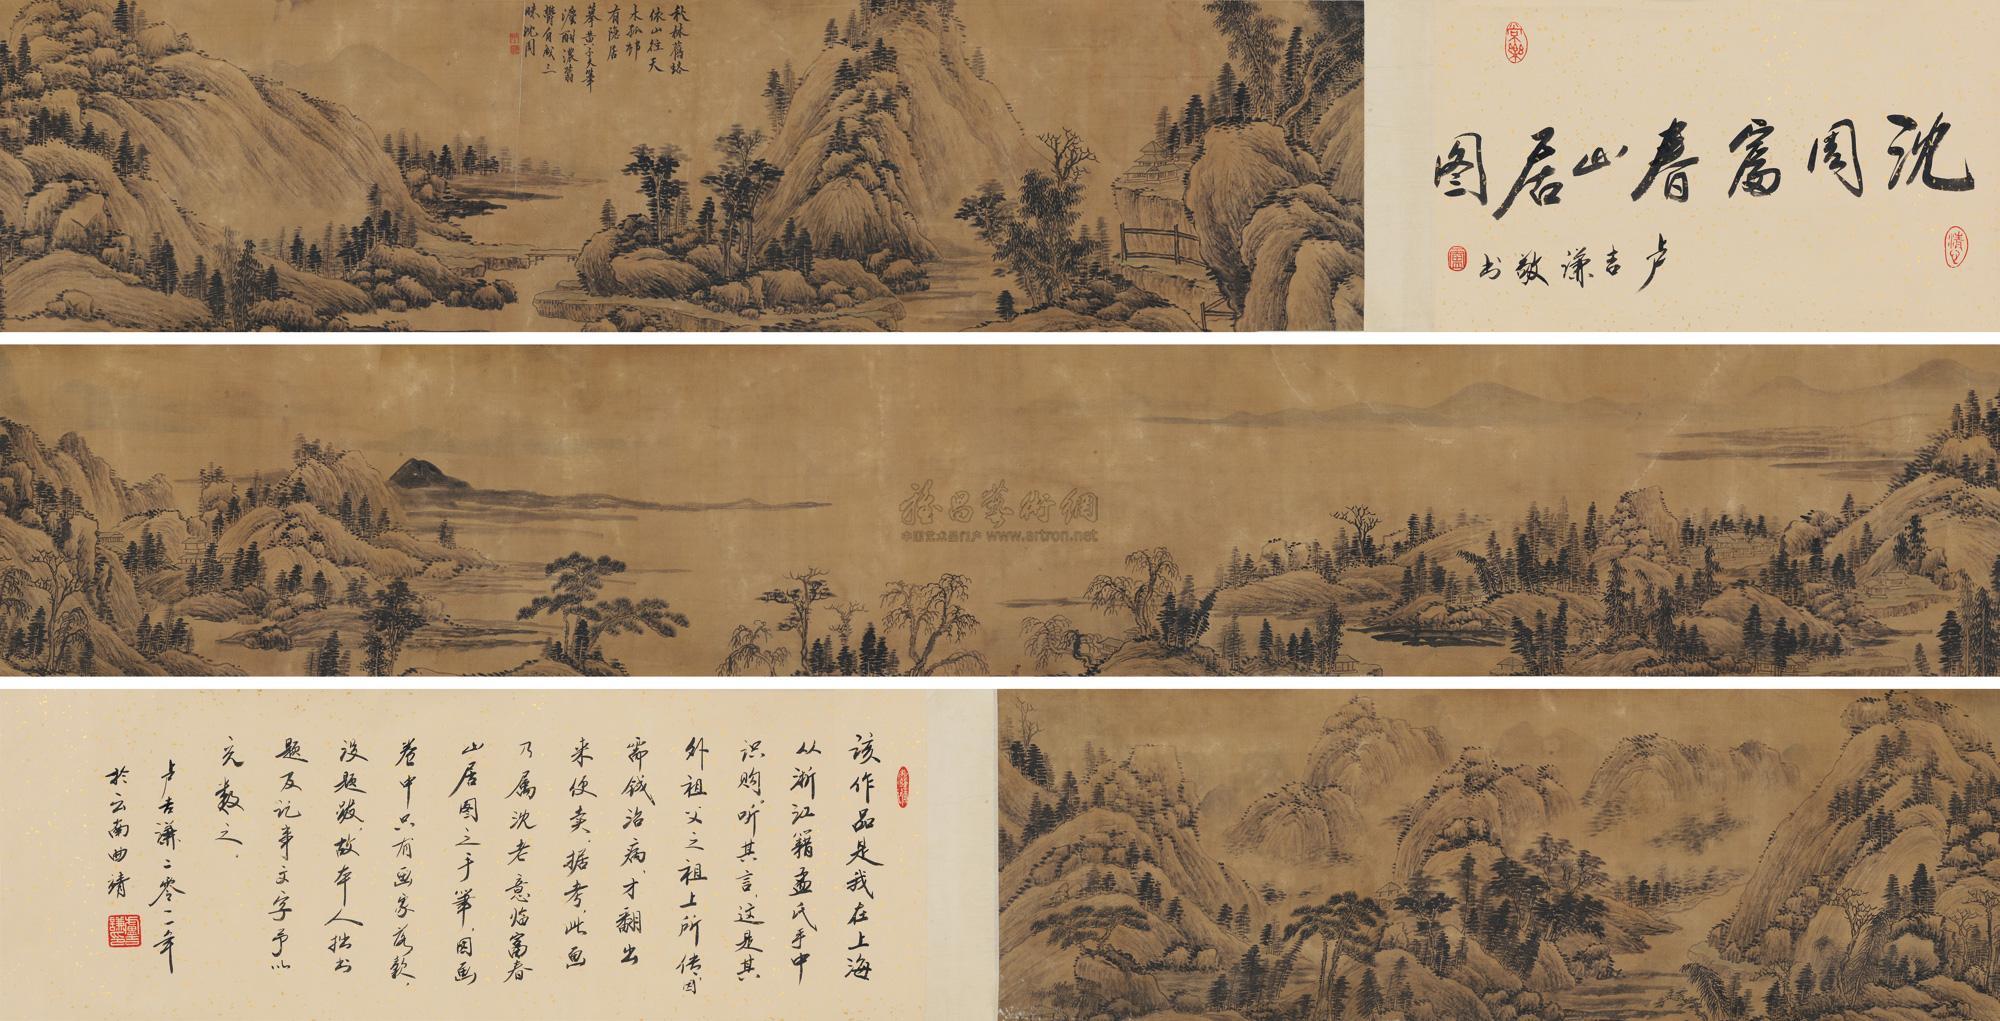 沈周富春山居图
卢吉谦敬书
秋林旧路
依山径天
水孤村
有隐居
摹黄子大笔
浓翁
沈周
雅昌艺术网
中国艺术品门户 www.artron.net
该作品是我在上海
从浙江籍孟氏手中
识购，听其言，这是其
外祖父之祖上所传，因
需钱治病，才翻出
来便卖，据考，此画
乃属沈老意临富春
山居图之手笔，因画
卷中只有画家落款，
没题跋，故本人拙书
题及记事文字予以
充数之。
卢吉谦二零一一年
於云南曲靖